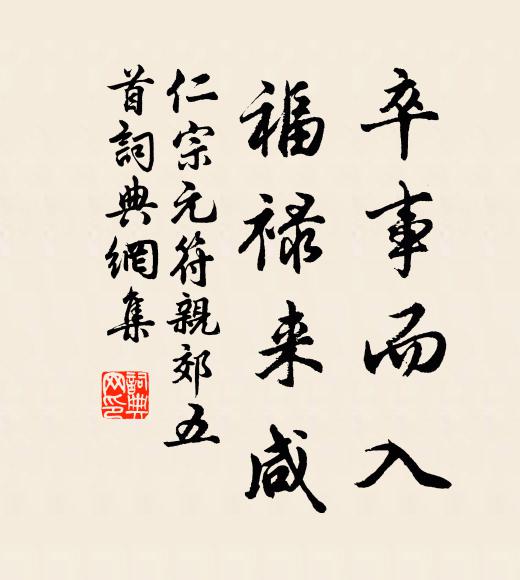 卒事而入
福禄来咸
仁宗元符親郊五
首詞典網集
詞典網印